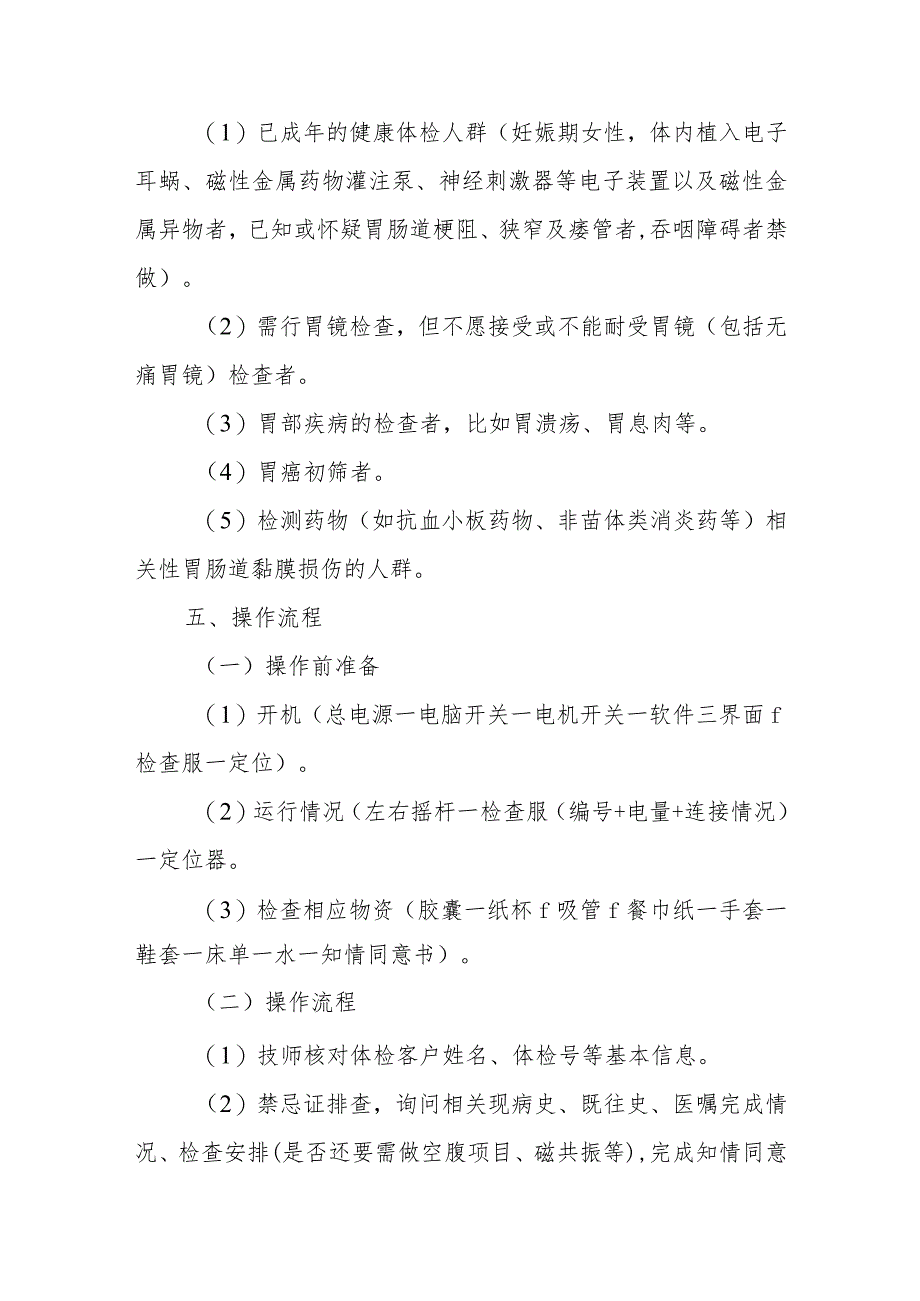 （1）已成年的健康体检人群（妊娠期女性，体内植入电子
耳蜗、磁性金属药物灌注泵、神经刺激器等电子装置以及磁性金
属异物者，已知或怀疑胃肠道梗阻、狭窄及瘘管者,吞咽障碍者禁
做）。
（2）需行胃镜检查，但不愿接受或不能耐受胃镜（包括无
痛胃镜）检查者。
（3）胃部疾病的检查者，比如胃溃疡、胃息肉等。
（4）胃癌初筛者。
（5）检测药物（如抗血小板药物、非苗体类消炎药等）相
关性胃肠道黏膜损伤的人群。
五、操作流程
（一）操作前准备
（1）开机（总电源一电脑开关一电机开关一软件三界面f
检查服一定位）。
（2）运行情况（左右摇杆一检查服（编号+电量+连接情况）
一定位器。
（3）检查相应物资（胶囊一纸杯f吸管f餐巾纸一手套一
鞋套一床单一水一知情同意书）。
（二）操作流程
（1）技师核对体检客户姓名、体检号等基本信息。
（2）禁忌证排查，询问相关现病史、既往史、医嘱完成情
况、检查安排(是否还要需做空腹项目、磁共振等),完成知情同意